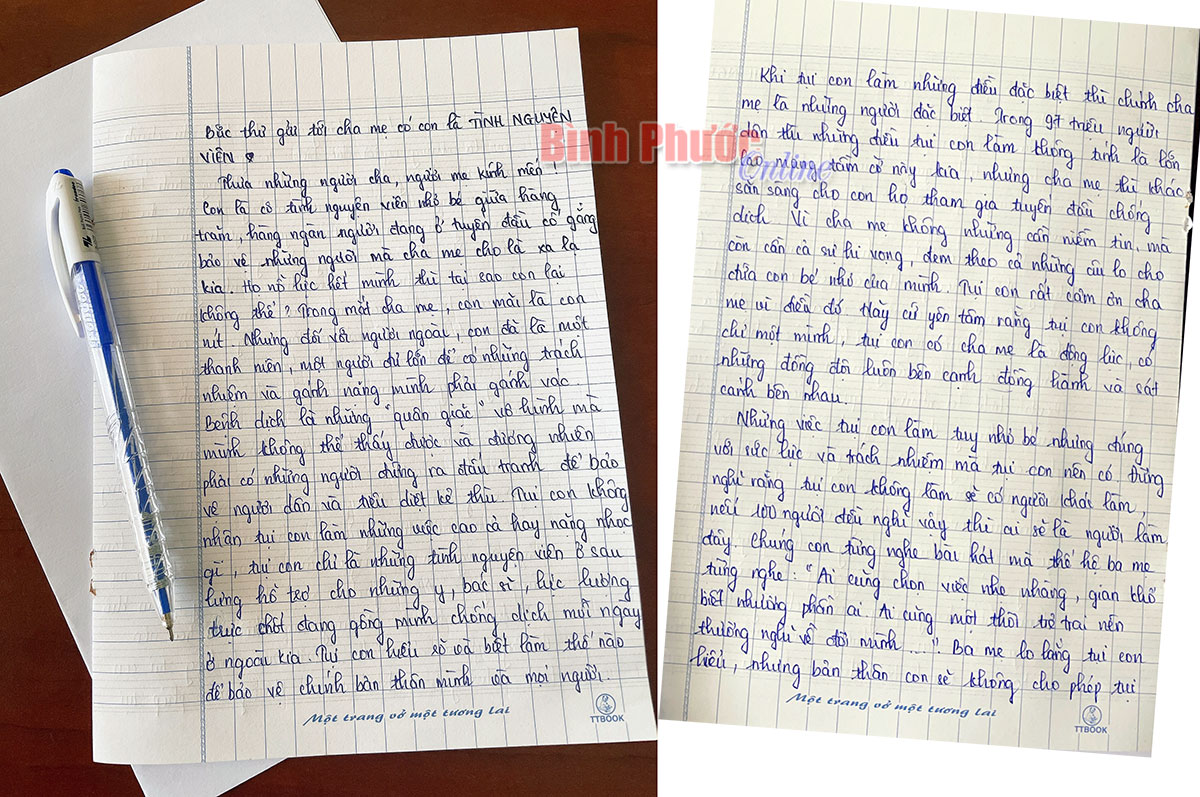 Bức thư gửi tới cha mẹ có con là TÌNH NGUYỆN
VIÊN
Thưa những người cha, người mẹ kính mến!
Con là cô tình nguyện viên nhỏ bé giữa hàng
trăm, hàng ngàn người đang ở tuyến đầu cố gắng
bảo vệ những người mà cha mẹ cho là xa lạ
kia. Họ nỗ lực hết mình thì tại sao con lại
không thể? Trong mắt cha mẹ, con mãi là con
nít. Nhưng đối với người ngoài, con đã là một
thanh niên, một người đủ lớn để có những trách
nhiệm và gánh nặng mình phải gánh vác.
Bệnh dịch là những "quân giặc" vô hình mà
mình không thể thấy được và đương nhiên
phải có những người đứng ra đấu tranh để bảo
vệ người dân và tiêu diệt kẻ thù. Tụi con không
nhận tụi con làm những việc cao cả hay nặng nhọc
gì, tụi con chỉ là những tình nguyện viên ở sau
lưng hỗ trợ cho những y, bác sĩ, lực lượng
trực chốt đang gồng mình chống dịch mỗi ngày
ở ngoài kia. Tụi con hiểu rõ và biết làm thế nào
để bảo vệ chính bản thân mình và mọi người.
Một trang vở một tương lai
TTBOOK
Bình Phước
Online
Khi tụi con làm những điều đặc biệt thì chính cha
mẹ là những người đặc biệt. Trong 97 triệu người
dân thì những điều tụi con làm không tính là lớn
lao mang tầm cỡ này kia, nhưng cha mẹ thì khác
sẵn sàng cho con họ tham gia tuyến đầu chống
dịch. Vì cha mẹ không những cần niềm tin, mà
còn cần cả sự hi vọng, đem theo cả những âu lo cho
đứa con bé nhỏ của mình. Tụi con rất cảm ơn cha
mẹ vì điều đó. Hãy cứ yên tâm rằng tụi con không
chỉ một mình, tụi con có cha mẹ là động lực, có
những đồng đội luôn bên cạnh đồng hành và sát
cánh bên nhau.
Những việc tụi con làm tuy nhỏ bé nhưng đúng
với sức lực và trách nhiệm mà tụi con nên có. Đừng
nghĩ rằng tụi con không làm sẽ có người khác làm,
nếu 100 người đều nghĩ vậy thì ai sẽ là người làm
đây. Chúng con từng nghe bài hát mà thế hệ ba mẹ
từng nghe: "Ai cũng chọn việc nhẹ nhàng, gian khổ
biết nhường phần ai. Ai cũng một thời trẻ trai nên
thường nghĩ về đời mình...". Ba mẹ lo lắng tụi con
hiểu, nhưng bản thân con sẽ không cho phép tụi
Một trang vở một tương lai
TTBOOK